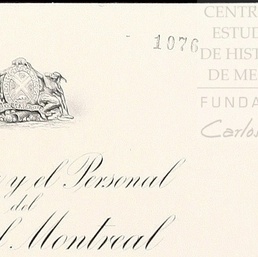 1076
CENTR
ESTUD
DE HISTO
DE ME
FUNDA
Carlos
y el Personal
del
l Montreal